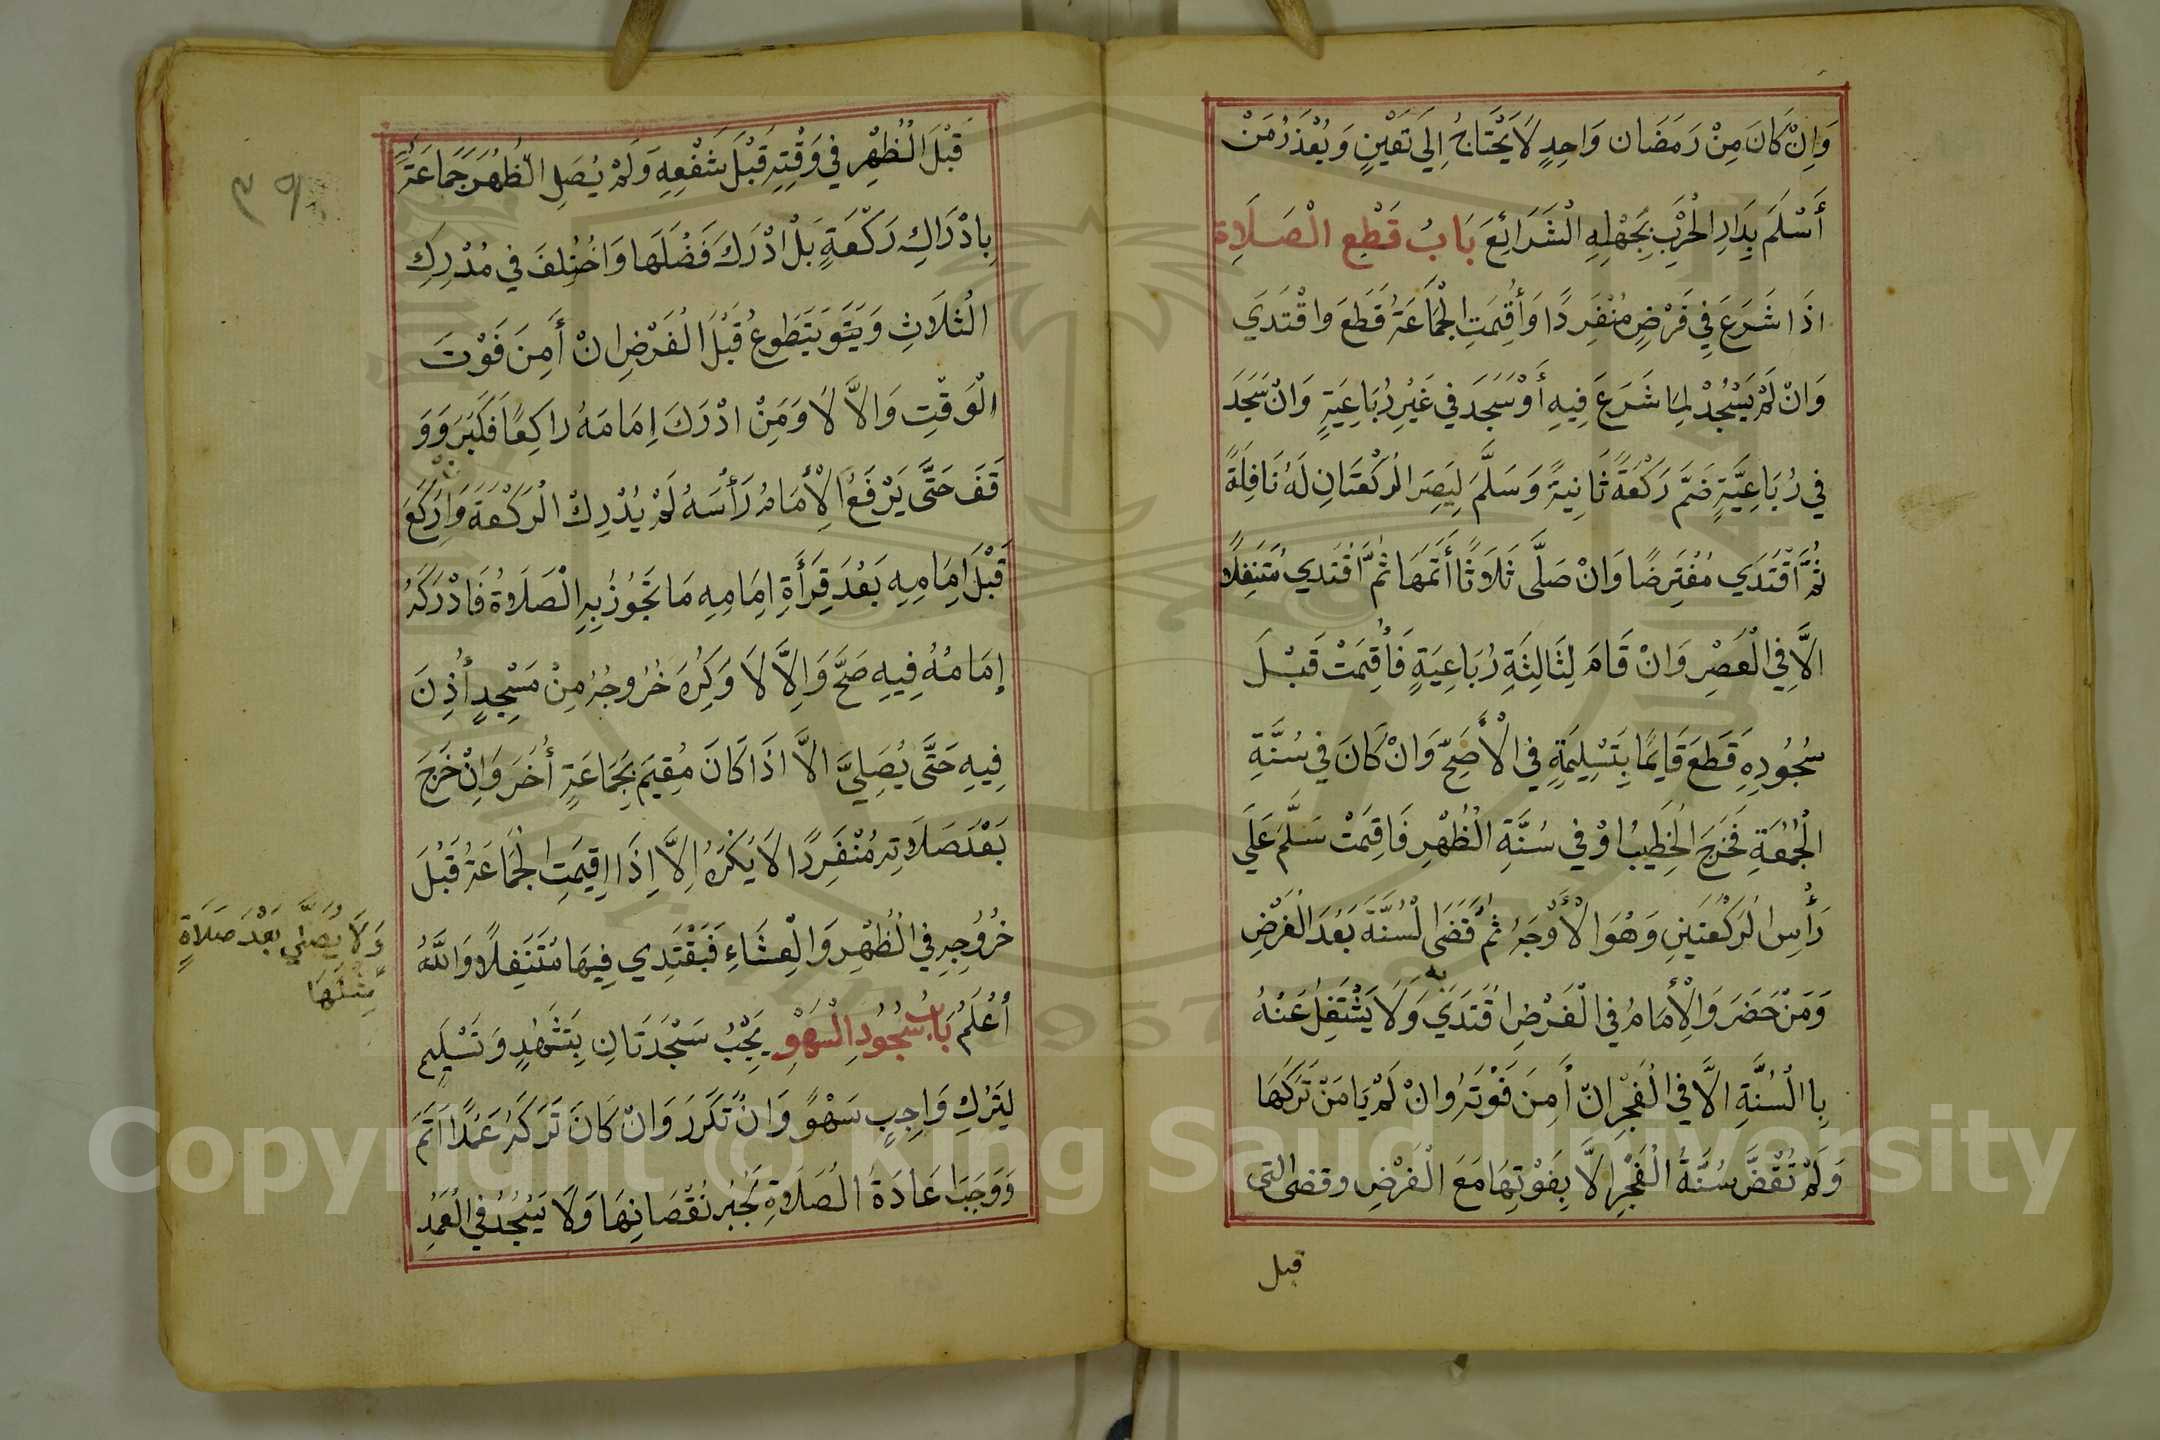 وَاِنْ كَانَ مِنْ رَمَضَان وَاحِدٍ لَا يَحْتَاجُ اِلَي تَعْيِنٍ وَيُعْذَرُ مَنْ
أَسْلَمَ بِدَارِ الْحَرْبِ بِجَهْلِهِ الْشَرَائِعَ بَابُ قَطْعِ الْصَلَاةِ
اذَا شَرَعَ فِي فَرْضٍ مُنْفَرِدًا وَأُقِيمَتِ الْجَمَاعَةُ قَطَعَ وَاقْتَدَي
وَانْ لَمْ يَسْجُدْ لِمَا شَرَعَ فِيهِ أَوْ سَجَدَ فِي غَيْرِ رُبَاعِيَةٍ وَانْ سَجَدَ
فِي رُبَاعِيَّةٍ ضَمَّ رَكْعَةً ثَانِيَةً وَسَلَّمَ لِيَصِرَ الْرَكْعَتَانِ لَهُ نَافِلَةً
ثُمَّ اقْتَدَي مُفْتَرِضًا وَانْ صَلَّى ثَلَاثًا أَتَمَّهَا ثُمَّ اقْتَدَي مُتَنَفِلًا
الَّا فِي الْعَصْرِ وَانْ قَامَ لِثَالِثَةِ رُبَاعِيَةٍ فَأُقِيمَتْ قَبْلَ
سُجُودِهِ قَطَعَ قَايِمًا بِتَسْلِيمَةٍ فِي الْأَصَحِّ وَانْ كَانَ فِي سُنَّةِ
الْجُمُعَةِ فَخَرَجَ الْخَطِيبُ اوْ فِي سُنَّةِ الْظُهْرِ فَاقِيمَتْ سَلَّمَ عَلَي
رَأْسِ الْرَكْعَتَيْنِ وَهُوَ الْأَوْجَهُ ثُمَّ قَضَى الْسُنَّةَ بَعْدَ الْفَرْضِ
وَمَنْ حَضَرَ وَالْأِمَامُ فِي الْفَرْضِ اقْتَدَي بِهِ وَلَا يَشْتَغِلُ عَنْهُ
بِاالْسُنَّةِ الَّا فِي الْفَجْرِ انْ أَمِنَ فَوْتَهُ وَانْ لَمْ يَامَنْ تَرَكَهَا
وَلَمْ تُقْضَ سُنَّةُ الْفَجْرِ الَّا بِفَوْتِهَا مَعَ الْفَرْضِ وقضى التى
قبل
قَبْلَ الْظُهْرِ فِي وَقْتِهِ قَبْلَ شَفْعِهِ وَلَمْ يُصَلِ الْظُهْرَ جَمَاعَةً
بِادْرَاكِ رَكْعَةٍ بَلْ ادْرَكَ فَضْلَهَا وَاخْتُلِفَ فِي مُدْرِكِ
الْثَلَاثِ وَيَتَوَ يَتَطَوعُ قَبْلَ الْفَرْضِ انْ أَمِنَ فَوْتَ
الْوَقْتِ وَالاَّ لَا وَمَنْ ادْرَكَ اِمَامَهُ رَاكِعًا فَكَبَرَ وَوَ
قَفَ حَتَّى يَرْفَعُ الْأِمَامُ رَأْسَهُ لَمْ يُدْرِكْ الْرَكْعَةَ وَانْ رَكَعَ
قَبْلَ اِمَامِهِ بَعْدَ قِرَأَةِ اِمَامِهِ مَا تَجُوزُ بِهِ الْصَلَاةُ فَادْرَكَهُ
اِمَامُهُ فِيهِ صَحَّ وَاِلاَّ لَا وَكُرِهَ خُرُوجُهُ مِنْ مَسْجِدٍ أُذِنَ
فِيهِ حَتَّى يُصَلِيَّ الاَّ اذَا كَانَ مُقِيمَ بِجَمَاعَةٍ أُخَرَ وَاِنْ خَرَجَ
بَعْدَ صَلَاتِهِ مُنْفَرِدًا لَا يُكْرَهُ اِلاَّ اِذَا اقِيمَتِ الْجَمَاعَةُ قَبْلَ
خُرُوجِهِ فِي الْظُهْرِ وَالْعِشَاءِ فَيَقْتَدِي فِيهَا مُتَنَفِلًا وَاللَّهُ
أَعْلَمُ بَابُ سُجُودِ الْسَهْوِ يَجِبُ سَجْدَتَانِ بِتَشَهُدٍ وَتَسْلِيمٍ
لِتَرْكِ وَاجِبٍ سَهْوً وَانْ تَكَرَرَ وَانْ كَانَ تَرَكَهُ عَمْدًا اَثَمَ
وَوَجَبَ اعَادَةُ الْصَلَاةِ بِجَبْرِ نُقْصَانِهَا وَلَا يَسْجُدُ فِي الْعَمْدِ
وَلَا يُصَلَّي بَعْدَ صَلَاةٍ
مِثْلَهَا
Copyright © King Saud University
1957